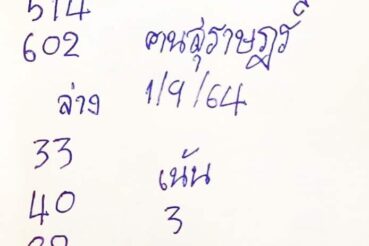 514
602 คนสุราษฎร์
ล่าง 1/9/64
33
เน้น
40
3